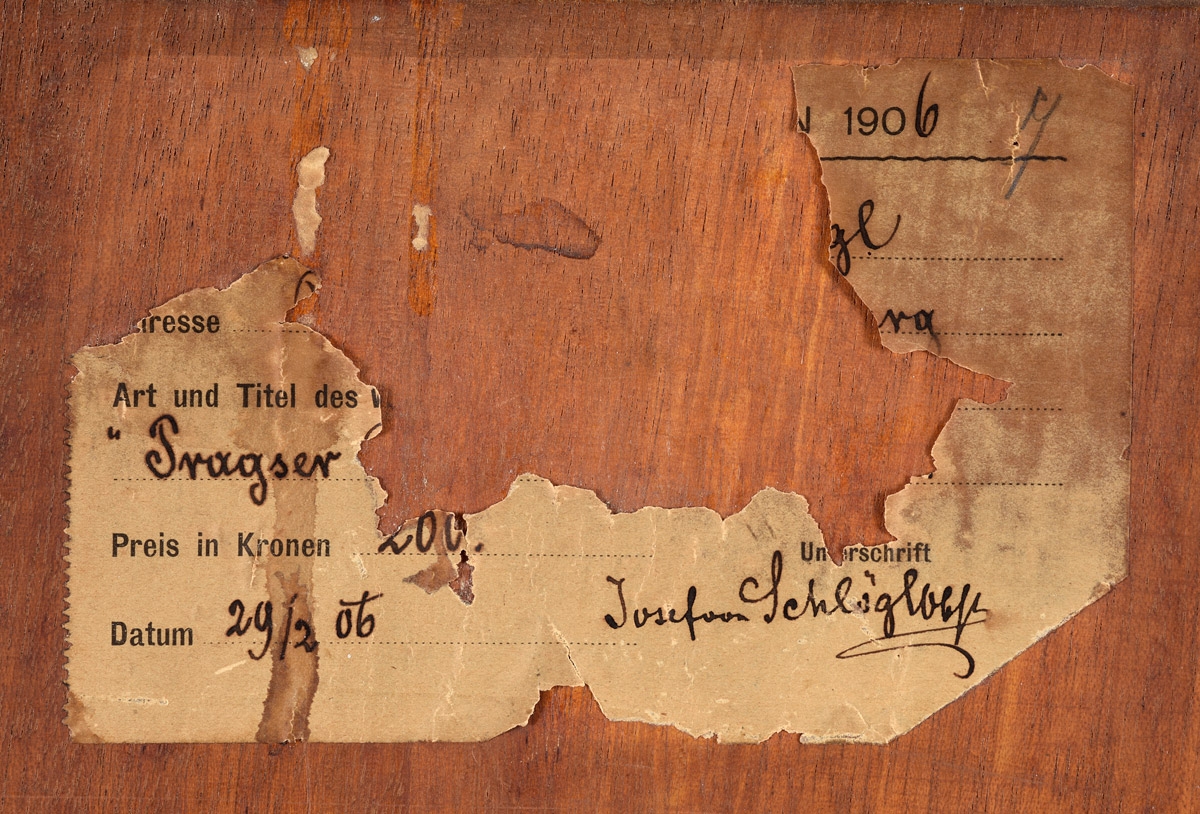 N 1906 7
gl
resse
rg
Art und Titel des W
"Pragser
Preis in Kronen 200.
Unterschrift
Josef von Schlögl
Datum 29/2 06